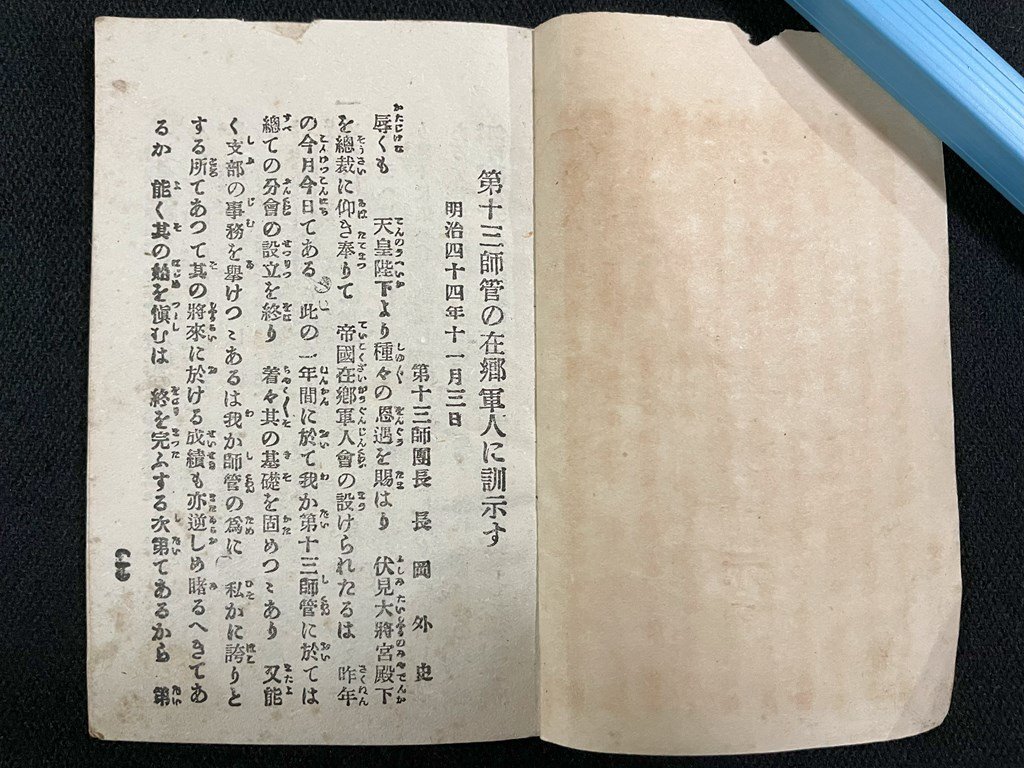 第十三師管の在鄕軍人に訓示す
明治四十四年十一月三日
第十三師團長 長岡外史
辱くも 天皇陛下より種々の恩遇を賜はり 伏見大將宮殿下
を總裁に仰き奉りて 帝國在鄕軍人會の設けられたるは 昨年
の今月今日てある 此の一年間に於て我か第十三師管に於ては
總ての分會の設立を終り 着々其の基礎を固めつゝあり 又能
く支部の事務を擧けつゝあるは我か師管の爲に 私かに誇りと
する所てあつて其の將來に於ける成績も亦逆しめ睹るへきてあ
るか 能く其の始を愼むは 終を完ふする次第てあるから 第